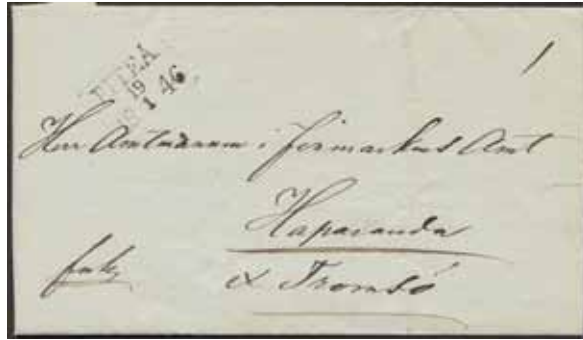 PITEA
19
1 46
Herr Amtmannen i finmarkens Amt
Haparanda
& Tromsö